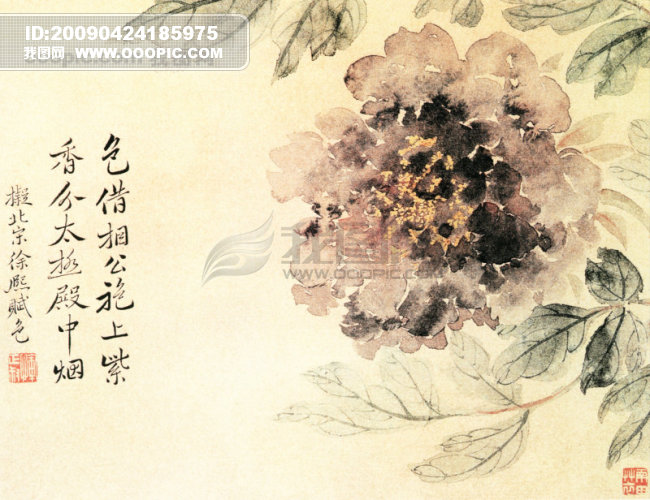 ID:20090424185975
我图网 www.OOOPIC.com
色借相公袍上紫
香分太极殿中烟
擬北宗徐熙赋色
我图网
OOOPIC.COM